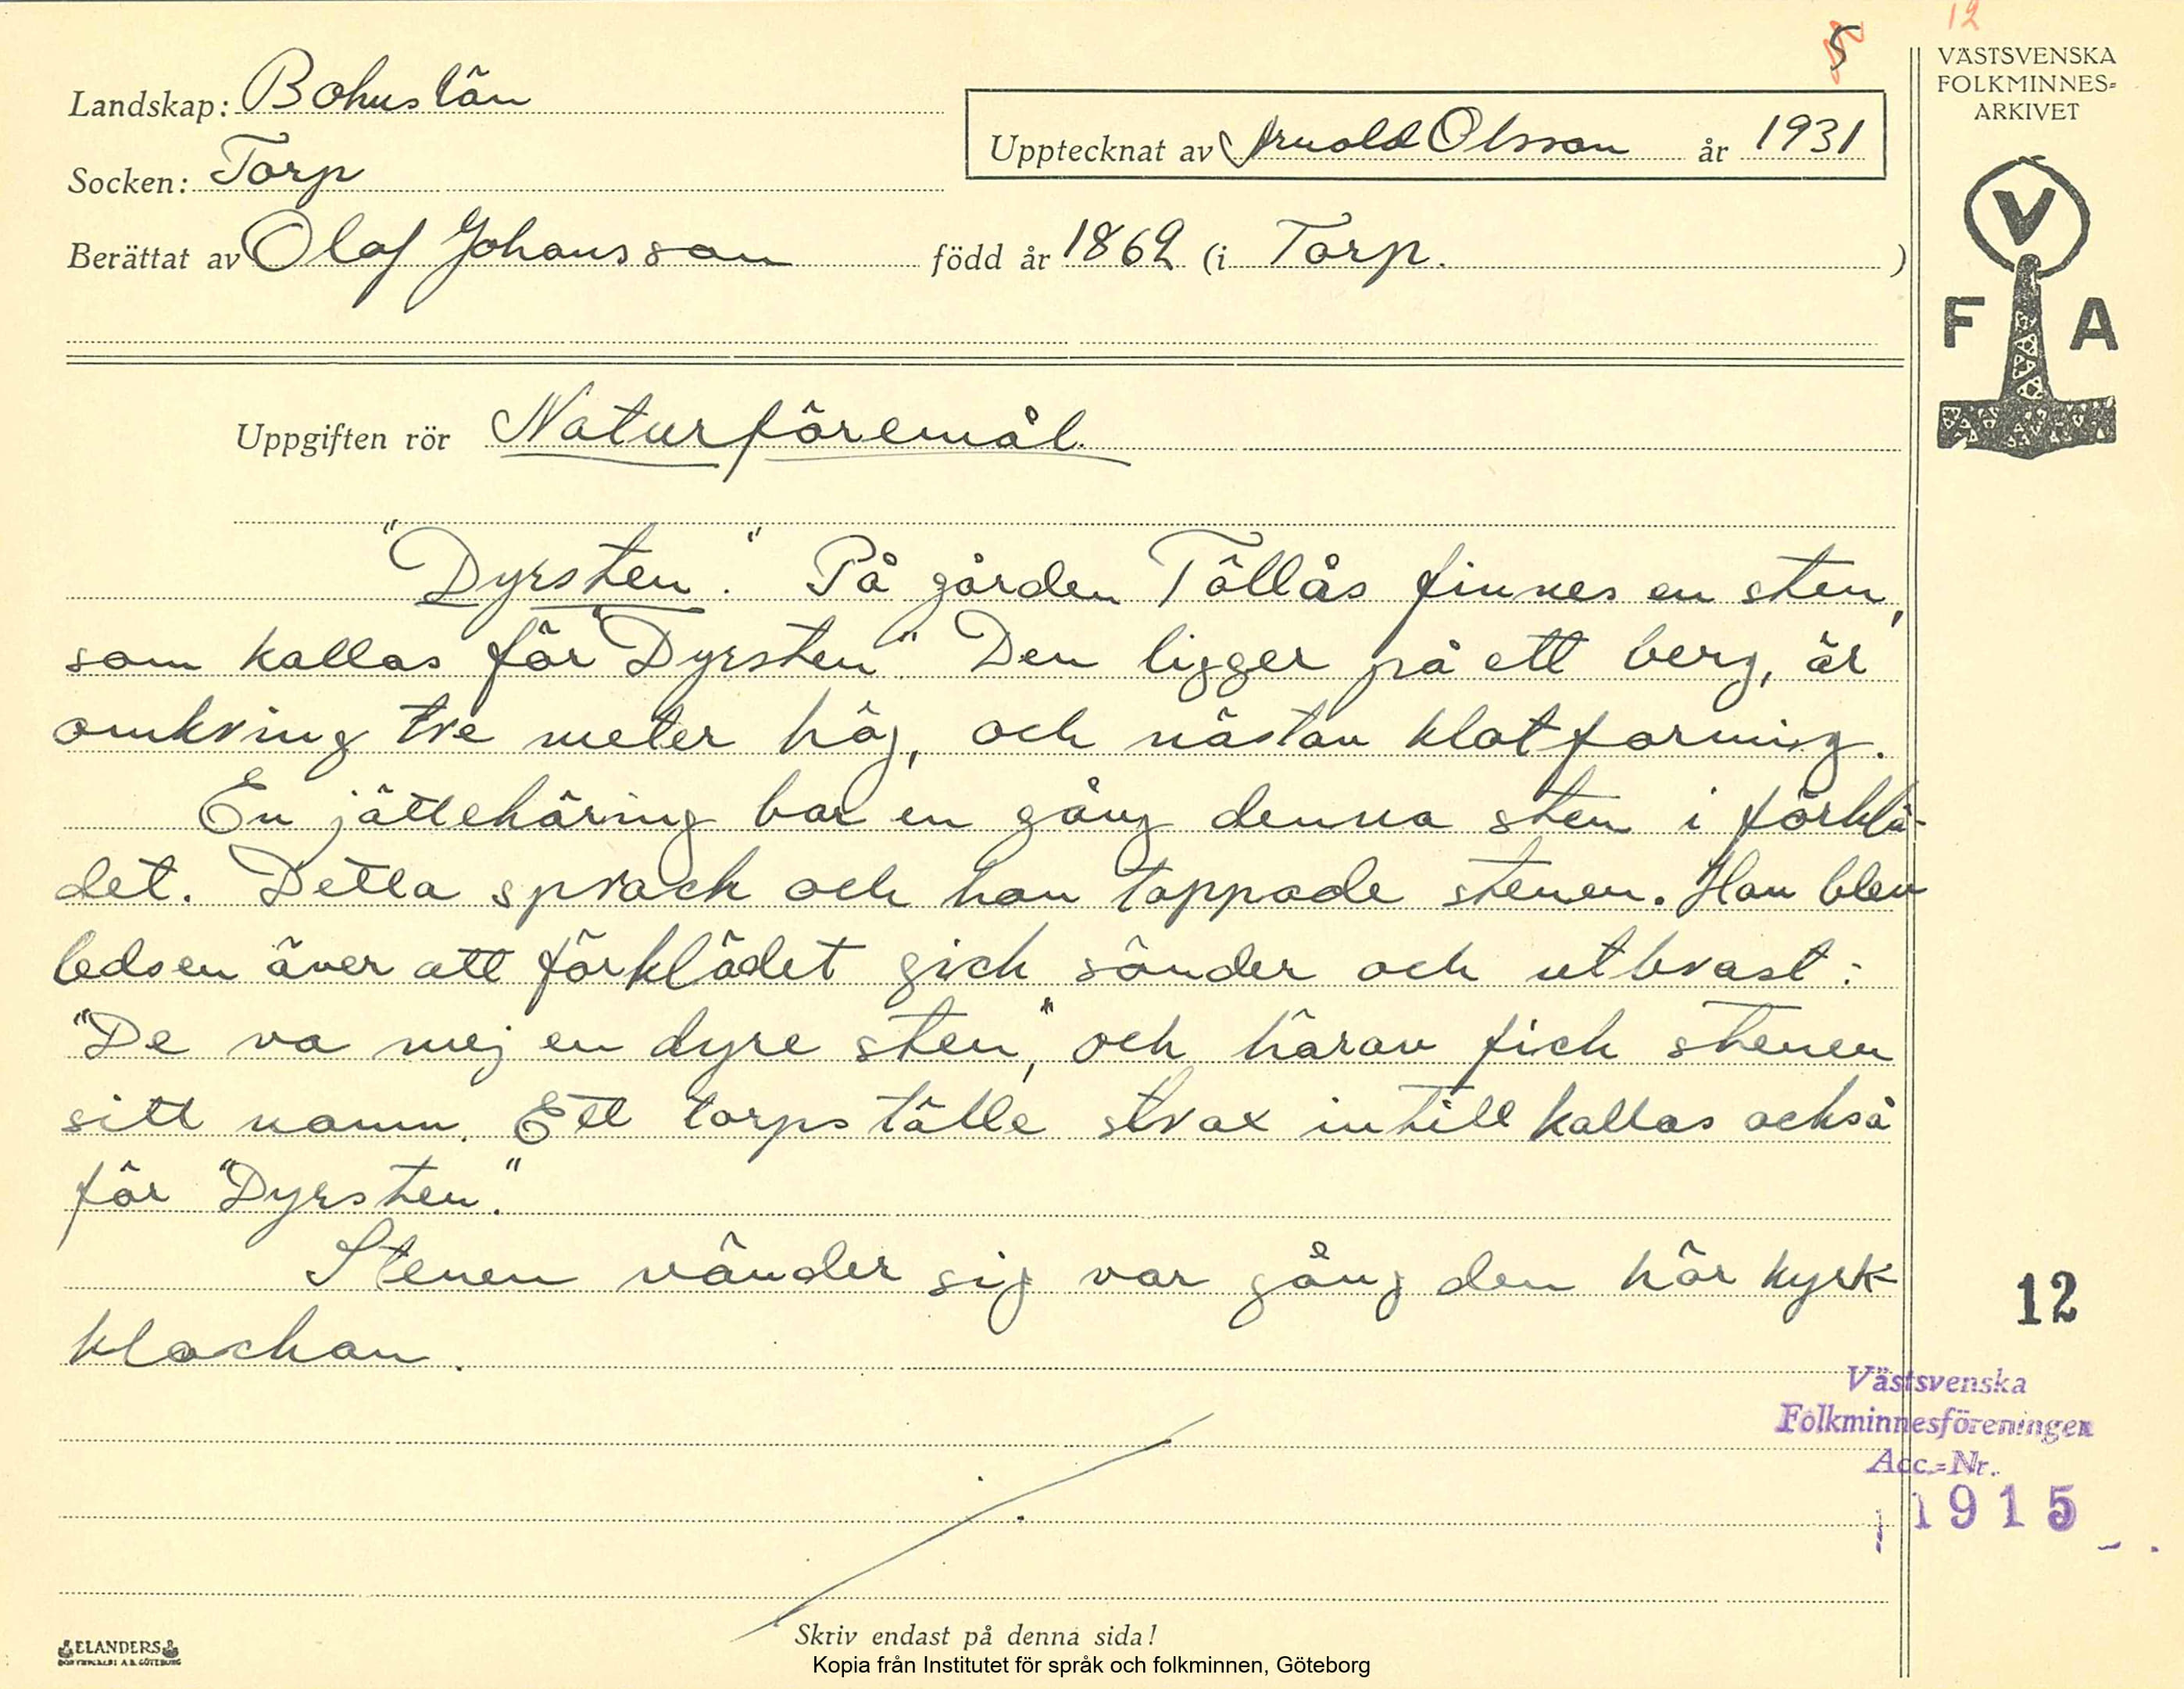 5
12
Landskap: Bohuslän
Upptecknat av Arnold Olsson år 1931
Socken: Torp
Berättat av Olaf Johansson född år 1862 (i Torp.)
VÄSTSVENSKA
FOLKMINNES=
ARKIVET
V
F A
Uppgiften rör Naturföremål.
"Dyrsten". På gården Töllås finnes en sten,
som kallas för "Dyrsten". Den ligger på ett berg, är
omkring tre meter hög, och nästan klotformig.
En jättekäring bar en gång denna sten i förklä-
det. Detta sprack och hon tappade stenen. Hon blev
ledsen över att förklädet gick sönder och utbrast:
"De va mej en dyre sten," och härav fick stenen
sitt namn. Ett torpställe strax intill kallas också
för "Dyrsten."
Stenen vänder sig var gång den hör kyrk-
klockan.
12
Västsvenska
Folkminnesföreningen
Acc.=Nr.
1915
Skriv endast på denna sida!
ELANDERS
BOKTRYCKERI A.B. GÖTEBORG
Kopia från Institutet för språk och folkminnen, Göteborg